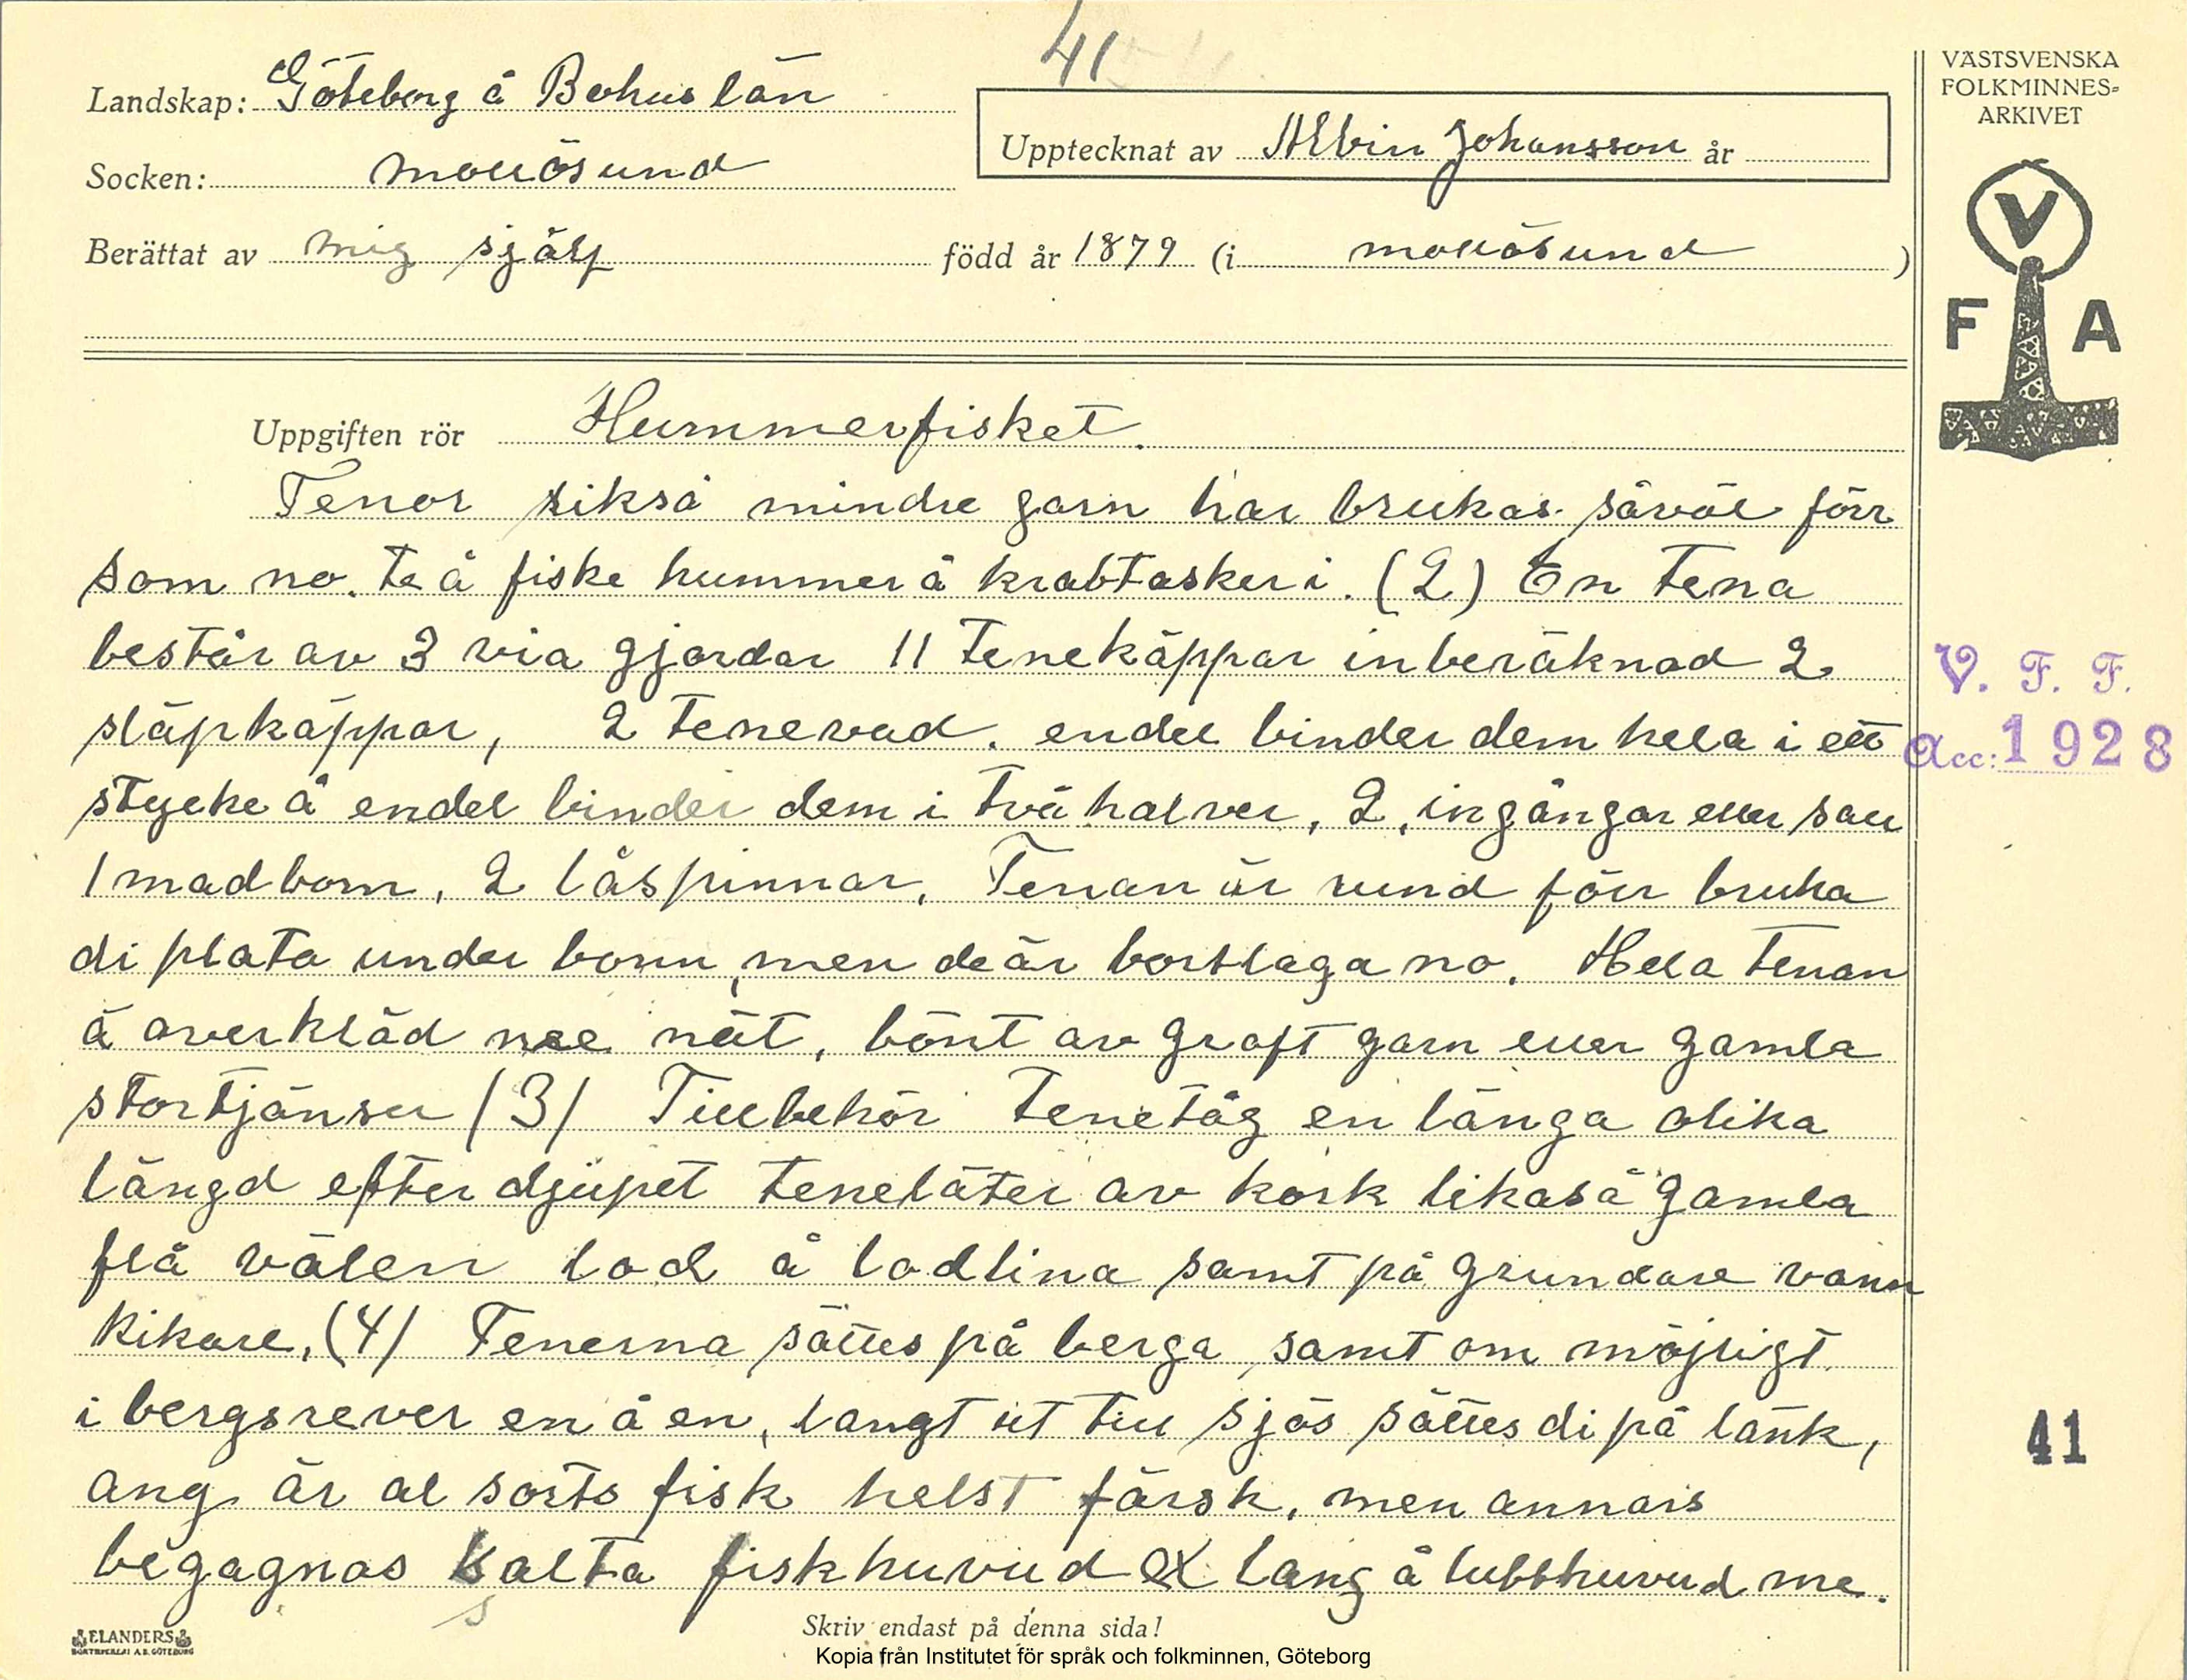 41
Landskap: Göteborg å Bohus län
VÄSTSVENSKA
FOLKMINNES=
ARKIVET
Upptecknat av Albin Johansson år
Socken: mollösund
Berättat av mig själf född år 1879 (i mollösund )
V
F A
Uppgiften rör Hummerfisket.
Tenor likså mindre garn har brukas såväl förr
som no. te å fiske hummer å krabtasker i. (2) En tena
består av 3 via gjordar 11 tenekäppar inberäknad 2
släpkäppar, 2 tenevad. endel binder dem hela i ett
V. F. F.
Acc: 1928
stycke å endel binder dem i två halver, 2, ingångar eller sall
1 madbom, 2 låspinnar, Tenan är rund förr bruka
di plata under bonn, men de är bortlaga no. Hela tenan
ä överkläd mee nät, bönt av groft garn eller gamla
stortjänser (3) Tillbehör tenetåg en långa olika
längd efter djupet teneläter av kork likaså gamla
flå vålen lod å lodlina samt på grundare vann
kikare, (4) Tenerna sättes på berga samt om möjligt
i bergsrever en å en, langt ut till sjös sättes di på länk,
41
ang är al sorts fisk helst färsk, men annars
begagnas salta fiskhuvud ex lang å lubbhuvud me.
ELANDERS
BOKTRYCKERI A.B. GÖTEBORG
Skriv endast på denna sida!
Kopia från Institutet för språk och folkminnen, Göteborg